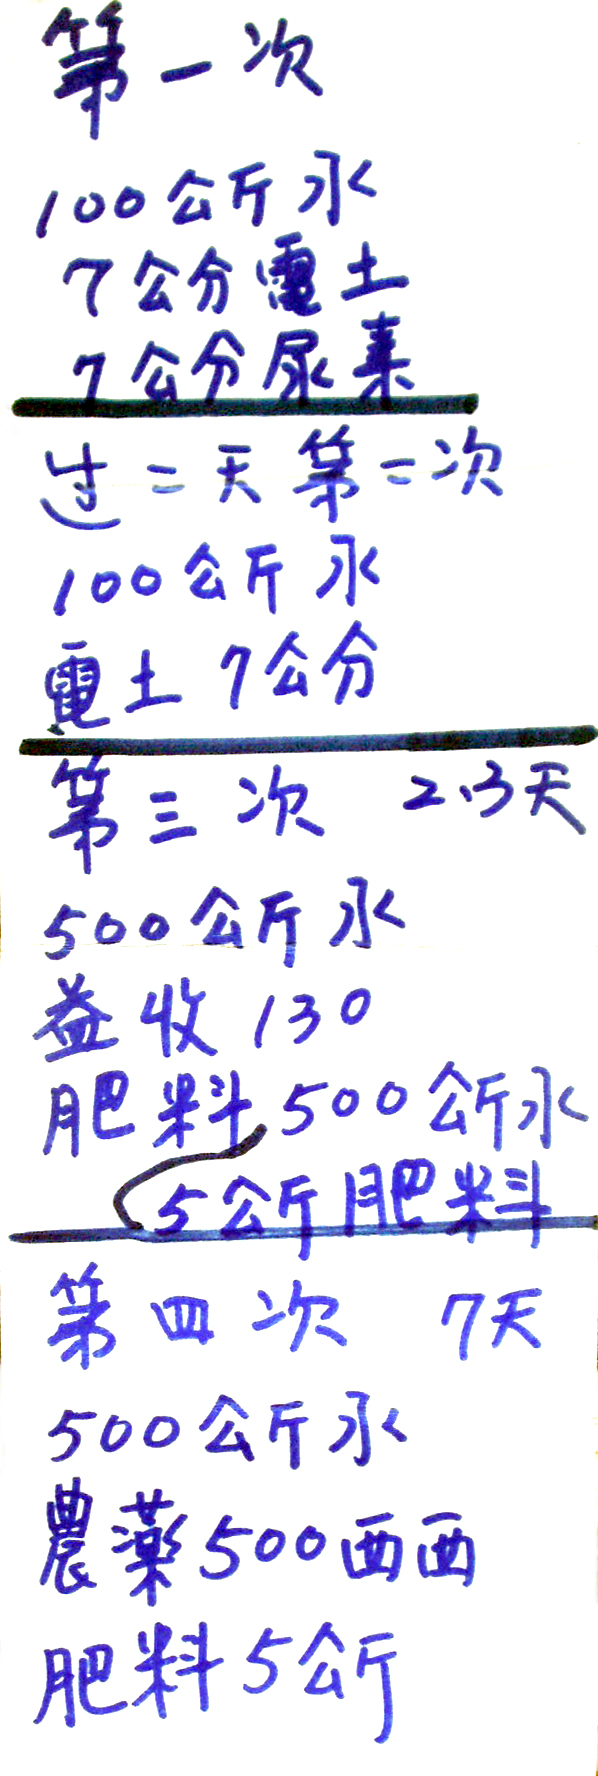 第一次
100公斤水
7公分電土
7公分尿素
过二天第二次
100公斤水
電土 7公分
第三次 2.3天
500公斤水
益收130
肥料500公斤水
5公斤肥料
第四次 7天
500公斤水
農薬500西西
肥料5公斤